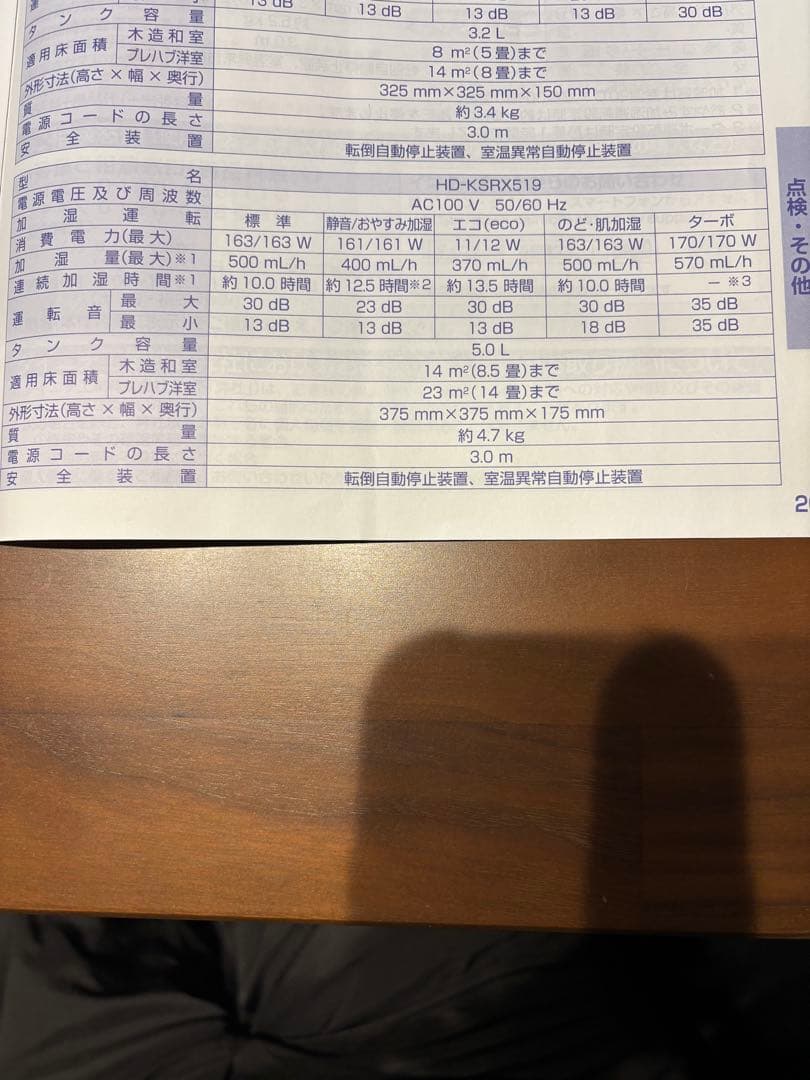 運 13 dB 13 dB 13 dB 13 dB 30 dB
タンク容量 3.2 L
適用床面積 木造和室 8 m²(5 畳)まで
プレハブ洋室 14 m²(8 畳)まで
外形寸法(高さ×幅×奥行) 325 mm×325 mm×150 mm
質量 約3.4 kg
電源コードの長さ 3.0 m
安全装置 転倒自動停止装置、室温異常自動停止装置
型名 HD-KSRX519
電源電圧及び周波数 AC100 V 50/60 Hz
加湿運転 標準 静音/おやすみ加湿 エコ(eco) のど・肌加湿 ターボ
消費電力(最大) 163/163 W 161/161 W 11/12 W 163/163 W 170/170 W
加湿量(最大)※1 500 mL/h 400 mL/h 370 mL/h 500 mL/h 570 mL/h
連続加湿時間※1 約10.0時間 約12.5時間※2 約13.5時間 約10.0時間 －※3
運転音 最大 30 dB 23 dB 30 dB 30 dB 35 dB
最小 13 dB 13 dB 13 dB 18 dB 35 dB
タンク容量 5.0 L
適用床面積 木造和室 14 m²(8.5 畳)まで
プレハブ洋室 23 m²(14 畳)まで
外形寸法(高さ×幅×奥行) 375 mm×375 mm×175 mm
質量 約4.7 kg
電源コードの長さ 3.0 m
安全装置 転倒自動停止装置、室温異常自動停止装置
点検・その他